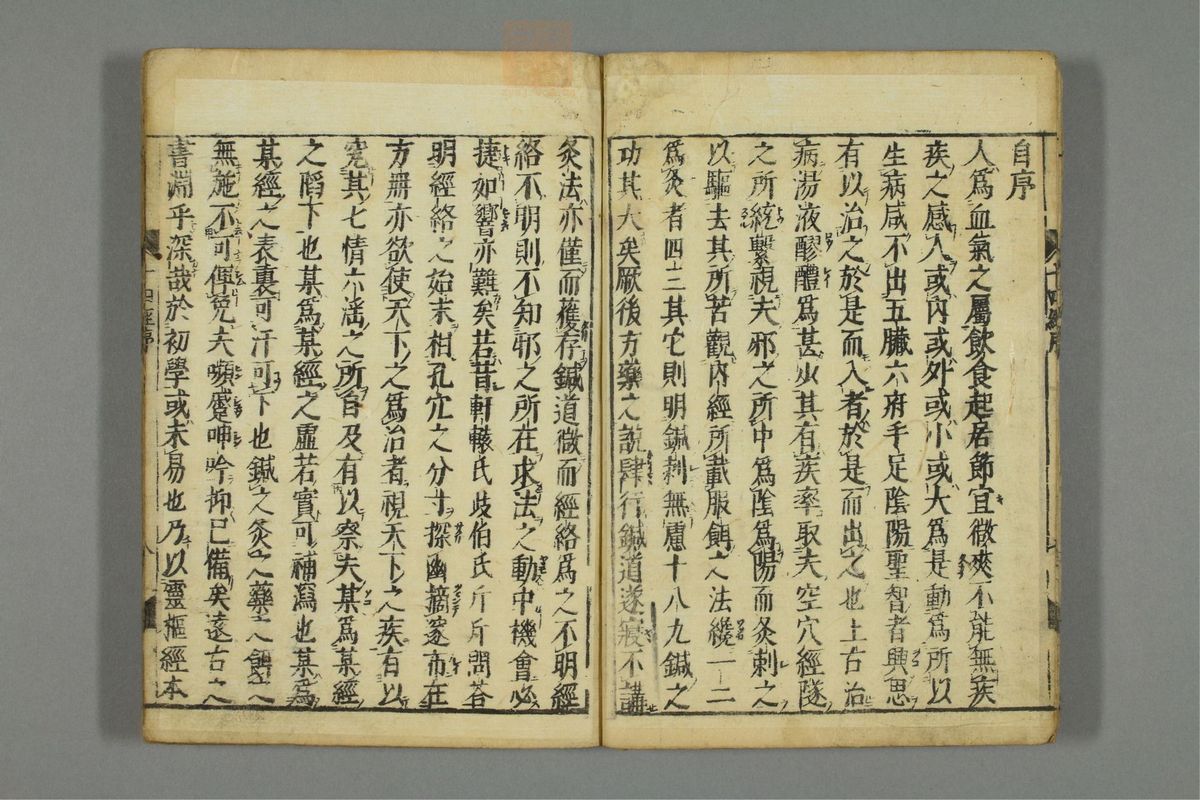 自序
人爲血氣之屬飲食起居節宜微爽不能無疾
疾之感人或內或外或小或大爲是動爲所以
生病咸不出五臟六府手足陰陽聖智者興思
有以治之於是而入者於是而出之也上古治
病湯液醪醴爲甚少其有疾率取夫空穴經隧
之所統繫視夫邪之所中爲陰爲陽而灸刺之
以驅去其所苦觀內經所載服餌之法纔一二
爲灸者四三其它則明鍼刺無慮十八九鍼之
功其大矣厥後方藥之說肆行鍼道遂寢不講
灸法亦僅而獲存鍼道微而經絡爲之不明經
絡不明則不知邪之所在求法之動中機會必
捷如響亦難矣若昔軒轅氏歧伯氏斤斤問荅
明經絡之始末相孔穴之分寸探幽摘邃布在
方冊亦欲使天下之爲治者視天下之疾有以
究其七情六淫之所自及有以察夫某爲某經
之陷下也某爲某經之虛若實可補瀉也某爲
某經之表裏可汗可下也鍼之灸之藥之餌之
無施不可俾免夫嚬蹙呻吟抑已備矣遠古之
書淵乎深哉於初學或未易也乃以靈樞經本
十四經序